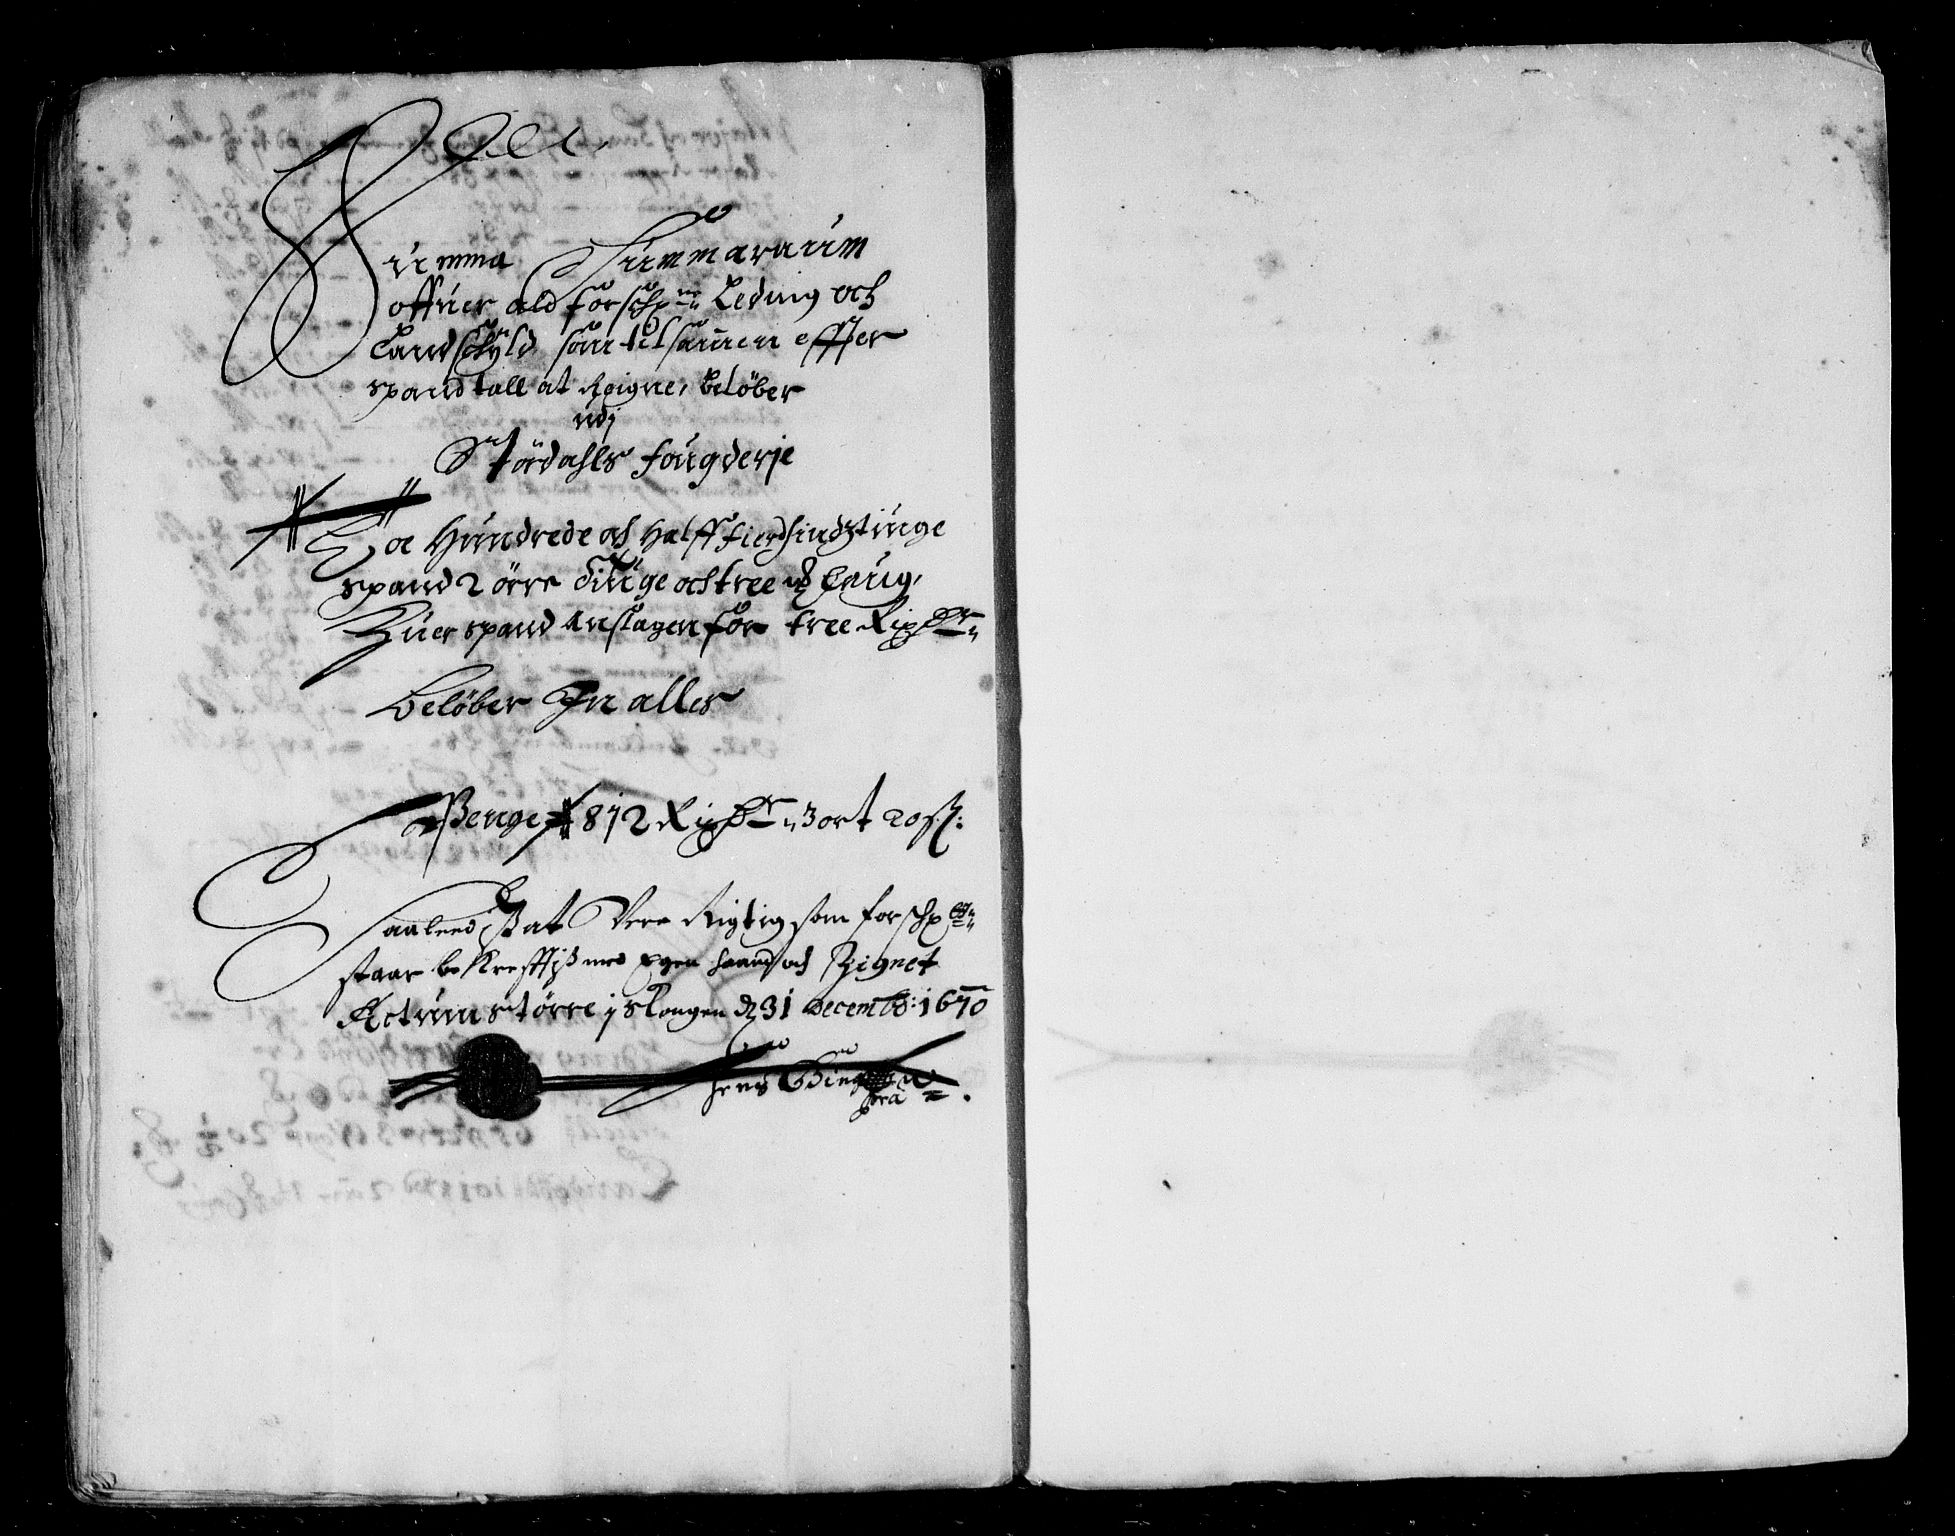 Summa Summaruum
offuer ald forschr:ne Leding och
Landschÿld som tilsamen effter
spand tall at Reigne, beløber
udj
Stördahls fougderje
Toe Hundrede och Halfffierdsindztiuge
spand 2 örre Siuge och tree
Huer spand Anslagen for tree Rixdr
Beløber In alles
Penge 812 Rixdr 3 ort 20 ß:
Saalediß at Vere Rigtig som forschr:t
staar bekrefftiß med Egen haand och Zignet
Actum Större j Slongen d 31 Decemb: 1670
Jens